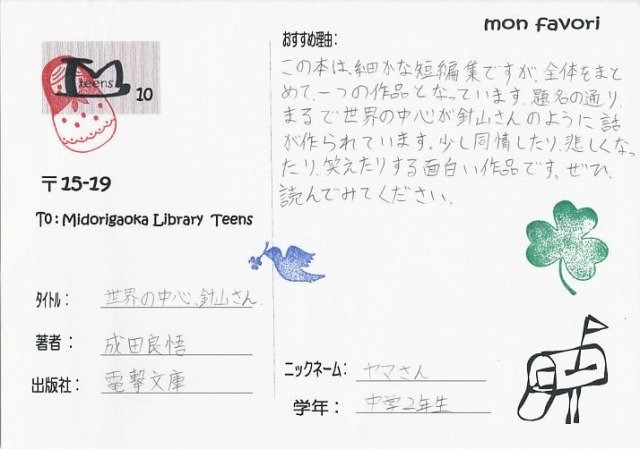 mon favori
teens
10
〒15-19
To: Midorigaoka Library Teens
タイトル： 世界の中心、針山さん
著者： 成田良悟
出版社： 電撃文庫
おすすめ理由：
この本は、細かな短編集ですが、全体をまと
めて、一つの作品となっています。題名の通り、
まるで世界の中心が針山さんのように話
が作られています。少し同情したり、悲しくなっ
たり、笑えたりする面白い作品です。ぜひ、
読んでみてください。
ニックネーム： ヤマさん
学年： 中学2年生